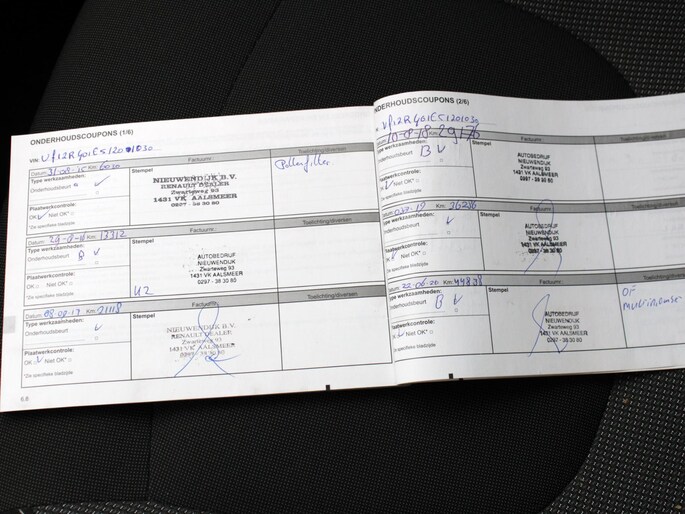 ONDERHOUDSCOUPONS (1/6)
Datum: 31-08-15 Km: 6030
Factuurnr.:
Toelichting/diversen
Type werkzaamheden:
Onderhoudsbeurt
Stempel
NIEUWENDIJK B.V.
RENAULT DEALER
Zwarteweg 93
1431 VK AALSMEER
0297 - 38 30 80
Pollenfilter
Plaatwerkcontrole:
OK Niet OK*
*Zie specifieke bladzijde
Km: 13312
Factuurnr.:
Toelichting/diversen
Type werkzaamheden:
Onderhoudsbeurt B
Stempel
AUTOBEDRIJF
NIEUWENDIJK
Zwarteweg 93
1431 VK AALSMEER
0297 - 38 30 80
Plaatwerkcontrole:
OK Niet OK*
*Zie specifieke bladzijde
Km: 21118
Factuurnr.:
Toelichting/diversen
Type werkzaamheden:
Onderhoudsbeurt
Stempel
NIEUWENDIJK B.V.
RENAULT DEALER
Zwarteweg 93
1431 VK AALSMEER
0297 - 38 30 80
Plaatwerkcontrole:
OK Niet OK*
*Zie specifieke bladzijde
6.8
ONDERHOUDSCOUPONS (2/6)
10-8-18 Km: 29176
Factuurnr.:
Toelichting/diversen
Type werkzaamheden:
Onderhoudsbeurt B
Stempel
AUTOBEDRIJF
NIEUWENDIJK
Zwarteweg 93
1431 VK AALSMEER
0297 - 38 30 80
Plaatwerkcontrole:
OK Niet OK*
*Zie specifieke bladzijde
Km: 36236
Factuurnr.:
Toelichting/diversen
Type werkzaamheden:
Onderhoudsbeurt
Stempel
AUTOBEDRIJF
NIEUWENDIJK
Zwarteweg 93
1431 VK AALSMEER
0297 - 38 30 80
Plaatwerkcontrole:
OK Niet OK*
*Zie specifieke bladzijde
Datum: 22-06-20 Km:
Factuurnr.:
Toelichting/diversen
Type werkzaamheden:
Onderhoudsbeurt B
Stempel
AUTOBEDRIJF
NIEUWENDIJK
Zwarteweg 93
1431 VK AALSMEER
0297 - 38 30 80
Plaatwerkcontrole:
OK Niet OK*
*Zie specifieke bladzijde